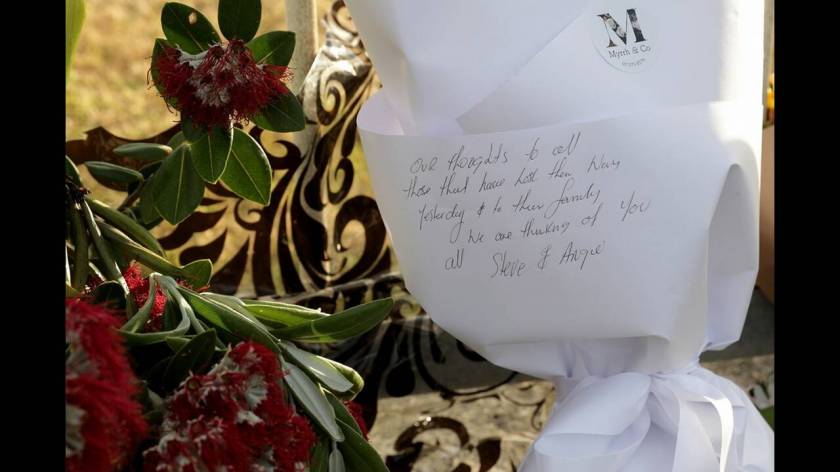 M
Myrrh & Co
Our thoughts to all
those that have lost their way
yesterday & to their family
We are thinking of you
all Steve & Angie